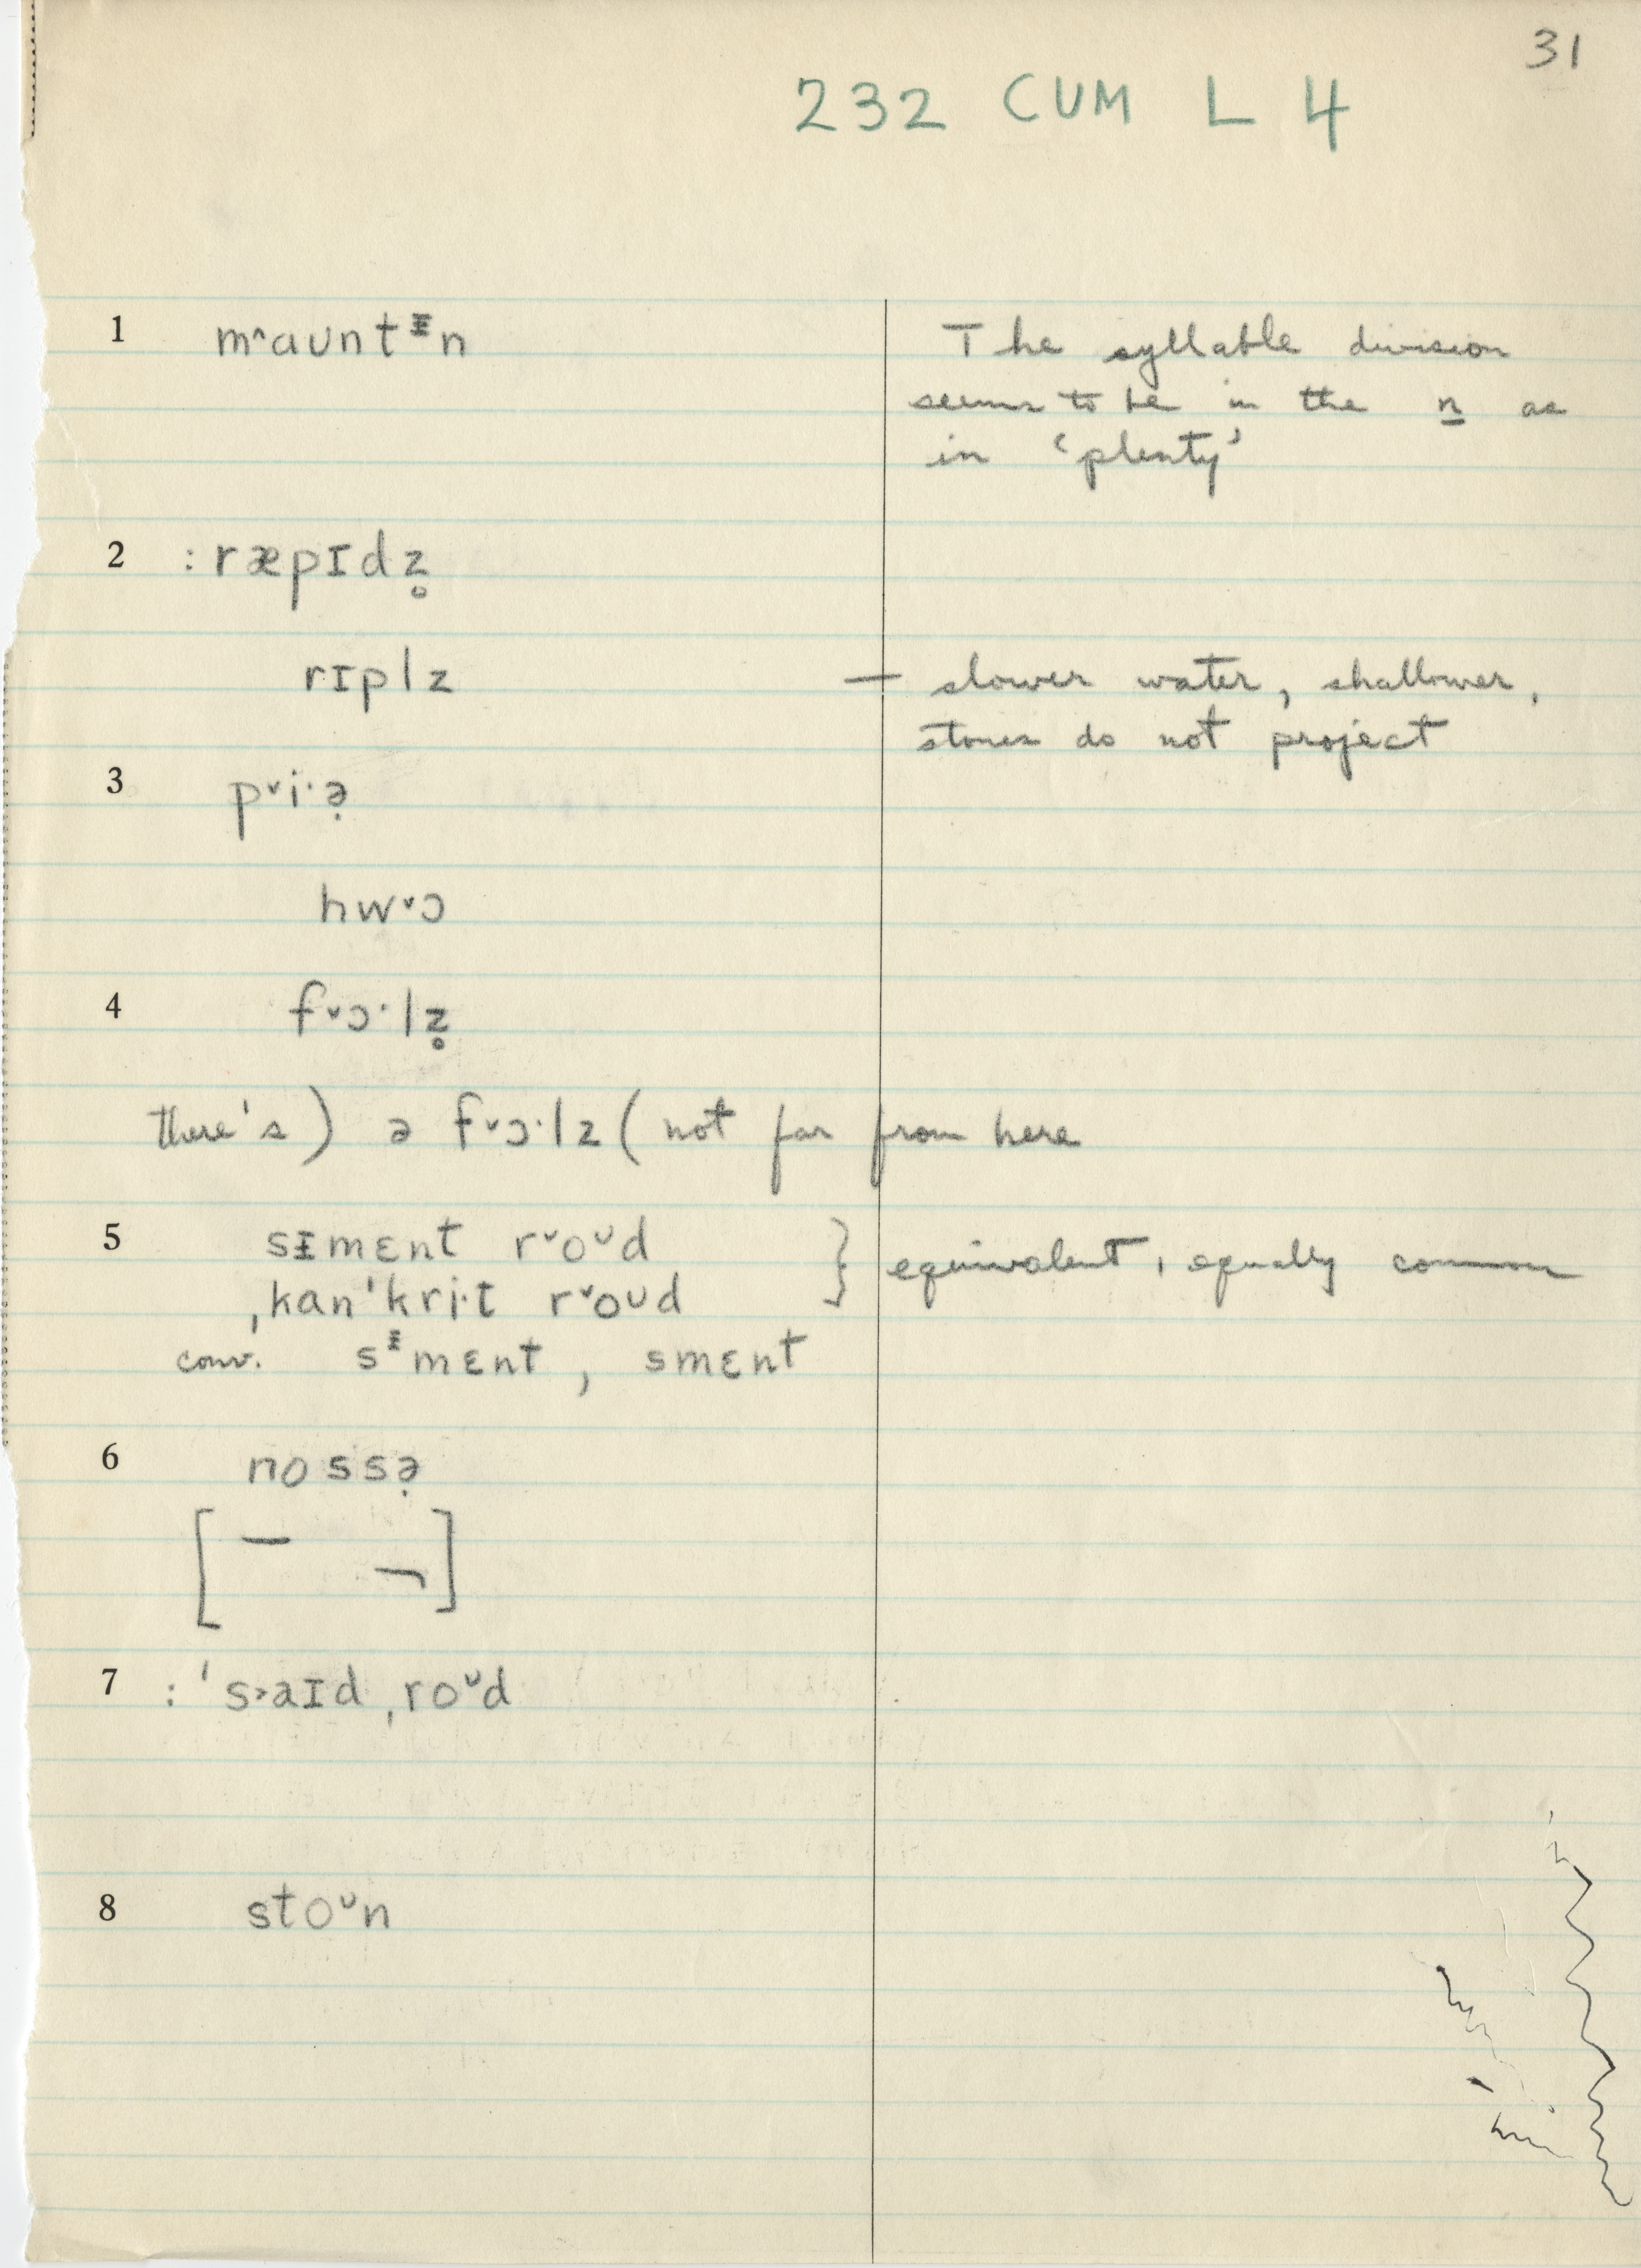 31
232 CUM L 4
1 m^aʊnt ᵻn The syllable division
seems to be in the n as
in 'plenty'
2 : ræpɪdz̥
rɪplz — slower water, shallower,
stones do not project
3 pˇi·ə̣
hwˇɔ
4 fˇɔ·lz̥
there's) ə fˇɔ·lz (not far from here
5 sᵻmɛnt rˇoᶷd } equivalent, equally common
ˌkan'kri·t rˇoʊd
conv. sᵻmɛnt, smɛnt
6 no s sə̣
[ – ¬ ]
7 : 's˃aɪd ˌroᶷd
8 stoᶷn